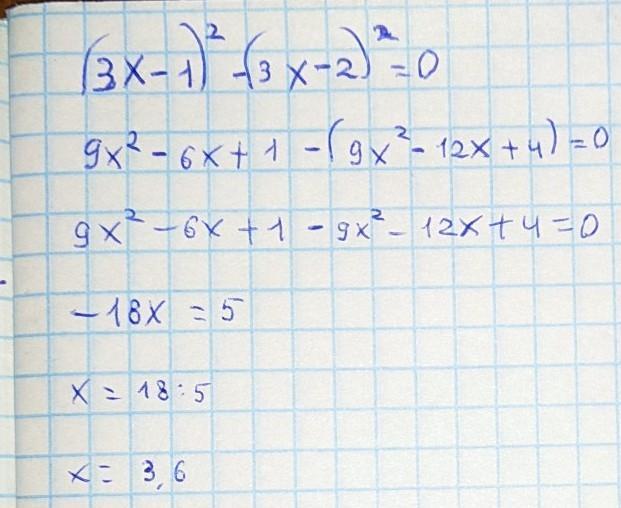 (3x-1)² -(3x-2)² =0
9x² - 6x + 1 -(9x² - 12x + 4) =0
9x² - 6x + 1 - 9x² - 12x + 4 = 0
-18x = 5
x = 18:5
x = 3,6